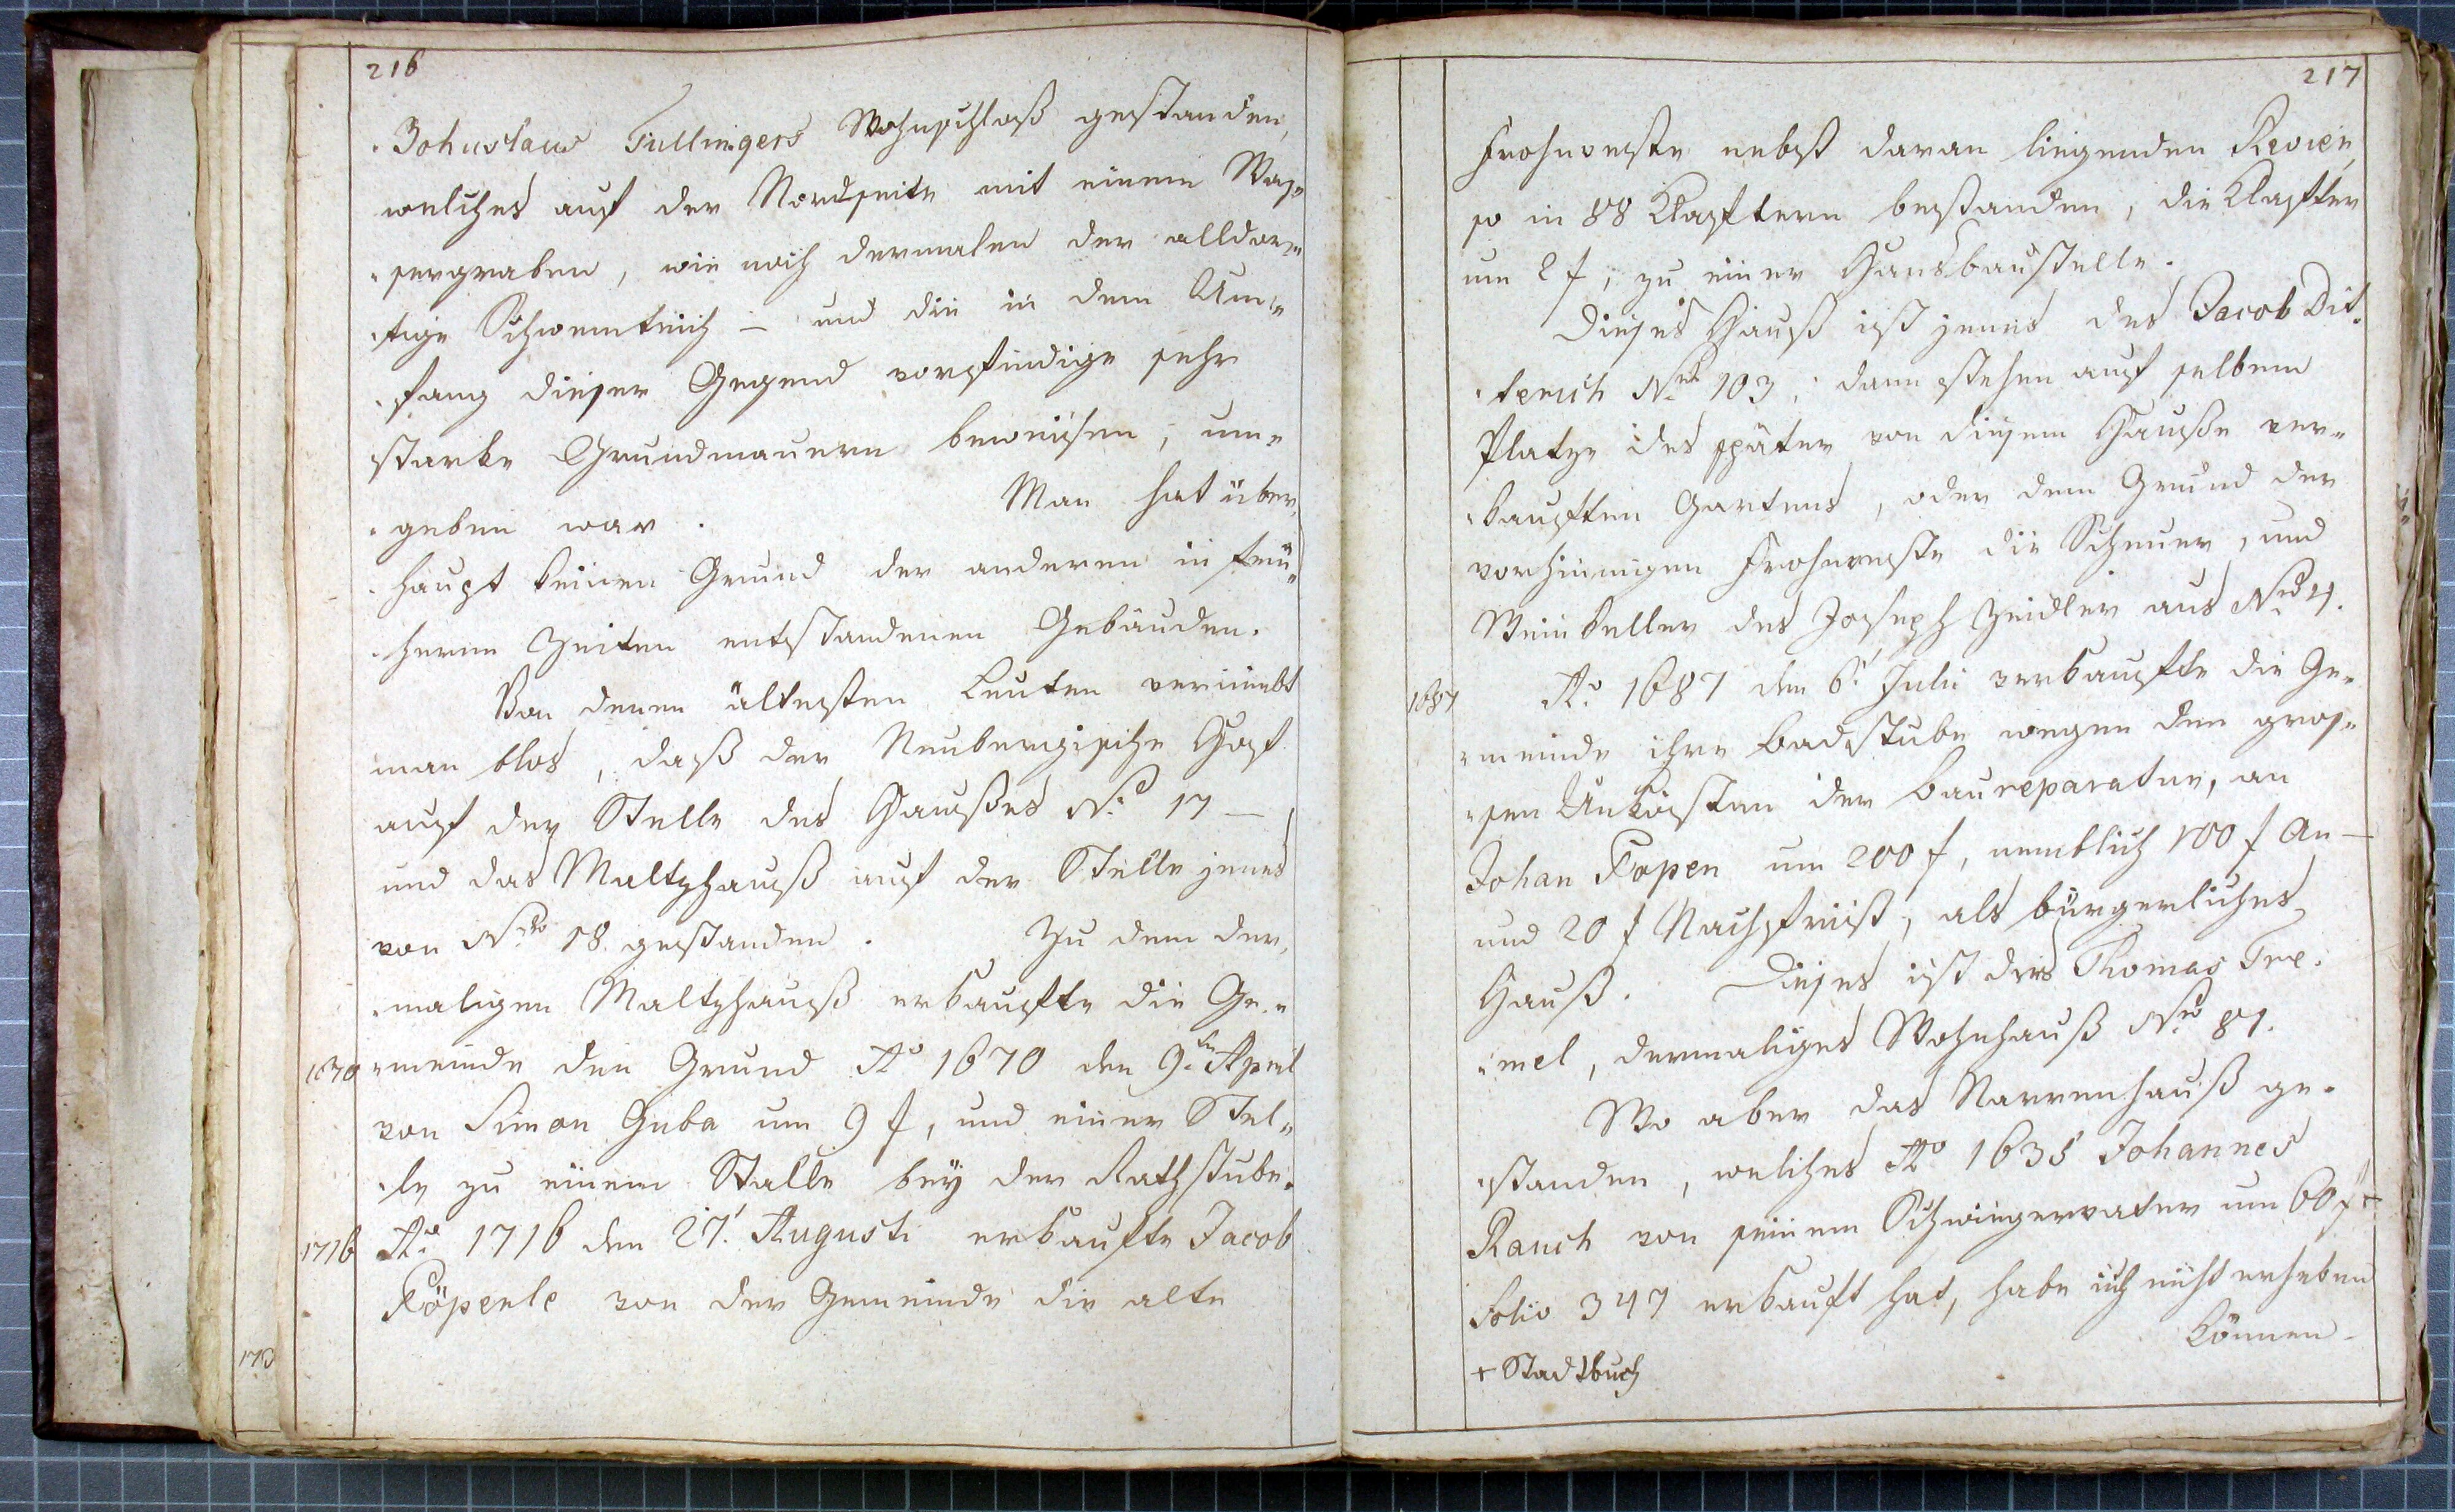 216
Bohuslaus Füllingers Wohnschloß gestanden,
welches auf der Nordseite mit einem Was=
sergraben, wie noch dermalen der alldor=
tige Schwemteich – und die in dem Um=
fang dieser Gegend vorfindige sehr
starke Grundmauern beweisen, um=
geben war. Man hat über=
haupt keinen Grund der anderen in frü=
hern Zeiten entstandenen Gebäuden.
Von denen ältesten Leuten vernimbt
man blos, daß der Neubergische Hof
auf der Stelle des Haußes No. 17 –
und das Maltzhauß auf der Stelle jenes
von Nro 18. gestanden. Zu dem der=
maligen Maltzhauß erkaufte die Ge=
1670 meinde den Grund Ao 1670 den 9ten April
von Simon Guba um 9 f, und einer Stel=
le zu einem Stalle bey der Rathstube.
1716 Ao 1716 den 27. Augusti erkaufte Jacob
Köperle von der Gemeinde die alte
1713
217
Frohnveste nebst daran liegenden Revier,
so in 88 Klaftern bestanden, die Klafter
um 2 f, zu einer Hausbaustelle.
Dieses Hauß ist jenes des Jacob Dit=
terich Nro 103; dann stehen auf selbem
Platze des später von diesem Hauße ver=
kauften Gartens, oder dem Grund der
vorhinnigen Frohnveste die Scheuer, und
Weinkeller des Joseph Zeidler aus Nro 4.
1687 Ao. 1687 den 6. Julii verkaufte die Ge=
meinde ihre Badstube wegen den gros=
sen Unkosten der Baureparatur, an
Johan Popen um 200 f, nemblich 100 f An –
und 20 f Nachfrist, als bürgerliches
Hauß. Dieses ist des Thomas Tre=
mel, dermaliges Wohnhauß Nro 81.
Wo aber das Narrenhauß ge=
standen, welches Ao 1635 Johannes
Rauch von seinem Schwiegervater um 60 f +
Folio 347 erkauft hat, habe ich nicht erheben
können.
+ Stadtbuch